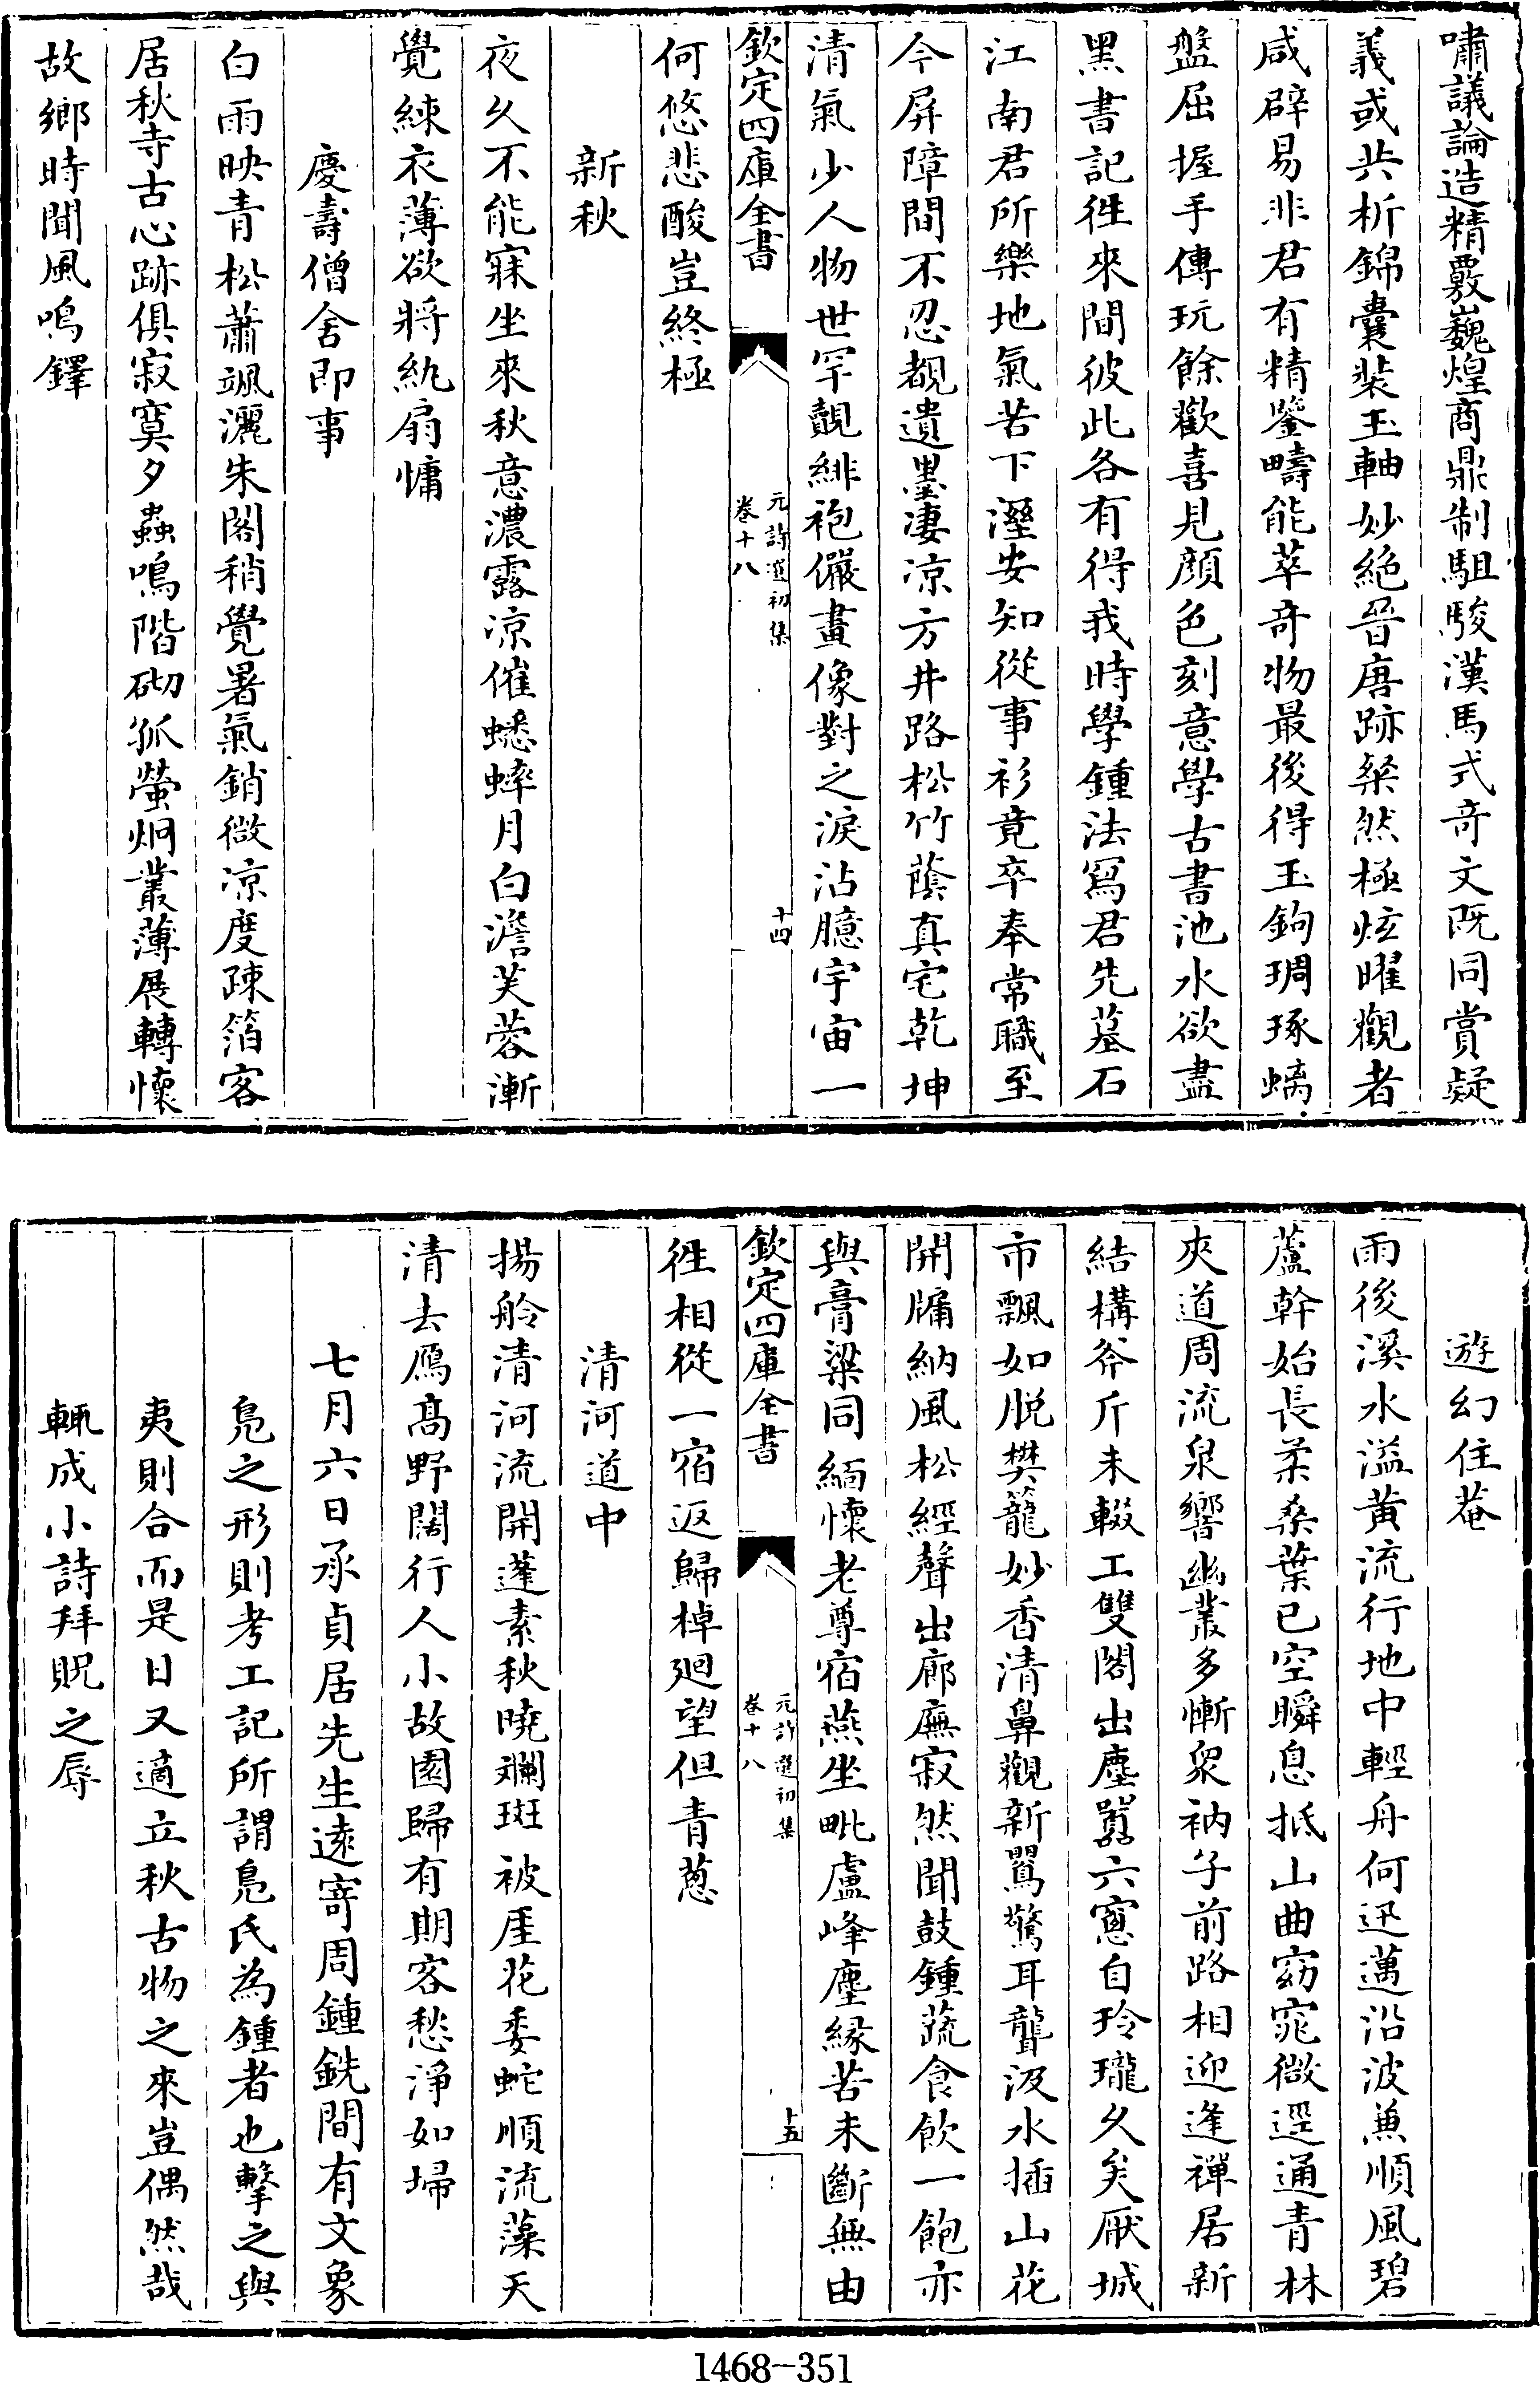 嘯議論造精覈巍煌商鼎制駔駿漢馬式奇文既同賞疑
義或共析錦囊裝玉軸妙絶晉唐跡粲然極炫曜觀者
咸辟易非君有精鑒疇能萃奇物最後得玉鉤琱琢螭
盤屈握手傳玩餘歡喜見顔色刻意學古書池水欲盡
黑書記徃來間彼此各有得我時學鍾法寫君先墓石
江南君所樂地氣苦下溼安知從事衫竟卒奉常職至
今屏障間不忍覩遺墨凄凉方井路松竹蔭真宅乾坤
清氣少人物世罕覿緋袍儼畫像對之淚沾臆宇宙一
欽定四庫全書
元詩選初集
卷十八
十四
何悠悲酸豈終極
新秋
夜久不能寐坐來秋意濃露凉催蟋蟀月白澹芙蓉漸
覺練衣薄欲將紈扇慵
慶壽僧舍即事
白雨映青松蕭颯灑朱閣稍覺暑氣銷微凉度疎箔客
居秋寺古心跡俱寂寞夕蟲鳴階砌孤螢炯叢薄展轉懷
故鄉時聞風鳴鐸
遊幻住菴
雨後溪水溢黄流行地中輕舟何迅邁沿波兼順風碧
蘆幹始長柔桑葉已空瞬息抵山曲窈窕微逕通青林
夾道周流泉響幽叢多慚衆衲子前路相迎逢禪居新
結構斧斤未輟工雙閣出塵囂六窻自玲瓏久矣厭城
市飄如脱樊籠妙香清鼻觀新鸎驚耳聾汲水插山花
開牖納風松經聲出廊廡寂然聞鼓鍾蔬食飲一飽亦
與膏粱同緬懷老尊宿燕坐毗盧峰塵緣苦未斷無由
欽定四庫全書
元詩選初集
卷十八
十五
徃相從一宿返歸棹廻望但青葱
清河道中
揚舲清河流開蓬素秋曉斕斑被厓花委蛇順流藻天
清去鴈髙野闊行人小故園歸有期客愁淨如埽
七月六日承貞居先生遠寄周鍾銑間有文象
鳬之形則考工記所謂鳬氏為鍾者也擊之與
夷則合而是日又適立秋古物之來豈偶然哉
輒成小詩拜貺之辱
1468-351